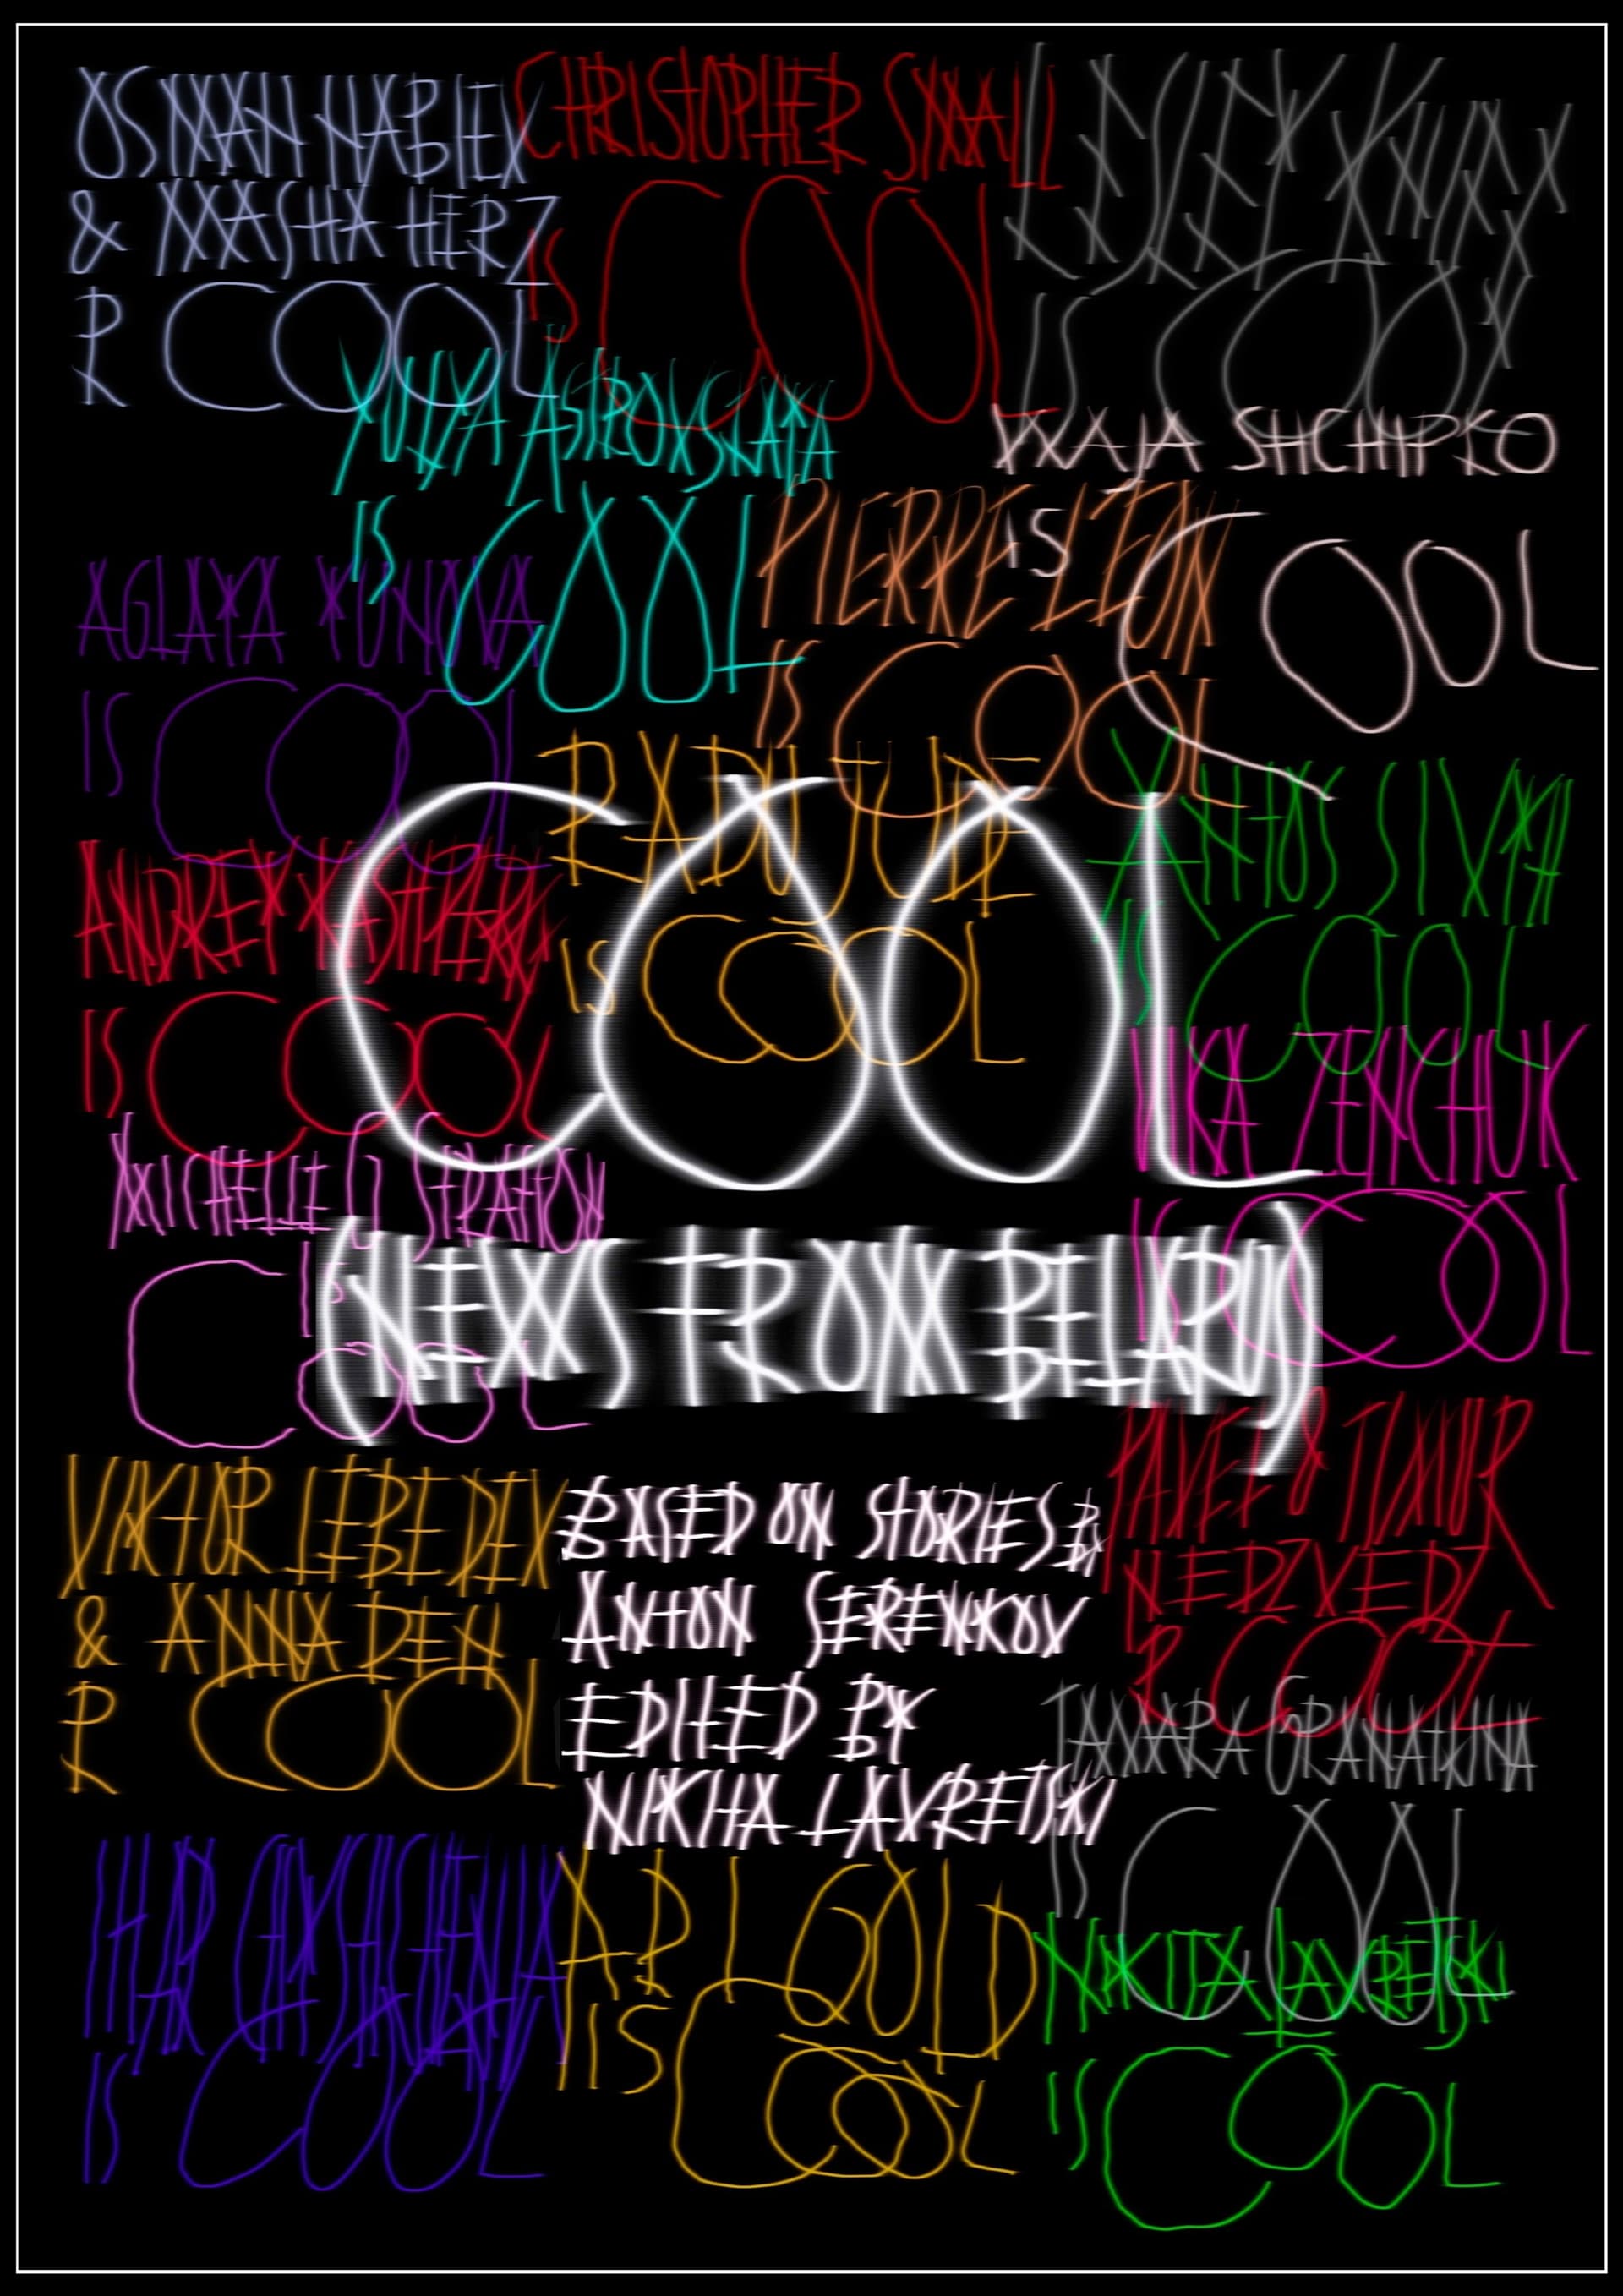 CHRISTOPHER SMALL
IS COOL
& MASHA HERZ
R COOL
LESLEY
IS COOL
YULYA ASTROVSKAYA
IS COOL
MAJA SHCHIPKO
IS COOL
PIERRE LEON
IS COOL
AGLAYA
IS COOL
RADU JUDE
IS COOL
XANTHOS SILVAH
IS COOL
ANDREY
IS COOL
COOL
(NEWS FROM BELARUS)
ZENCHUK
IS COOL
MICHELLE
IS COOL
VIKTOR LEBEDEV
& ANNA DEH
R COOL
BASED ON STORIES BY
ANTON SERENKOV
EDITED BY
NIKITA LAVRETSKI
PAVEL & TIMUR
NEDZVEDZ
R COOL
TAMARA
IS COOL
IS COOL
API GOLD
IS COOL
NIKITA LAVRETSKI
IS COOL